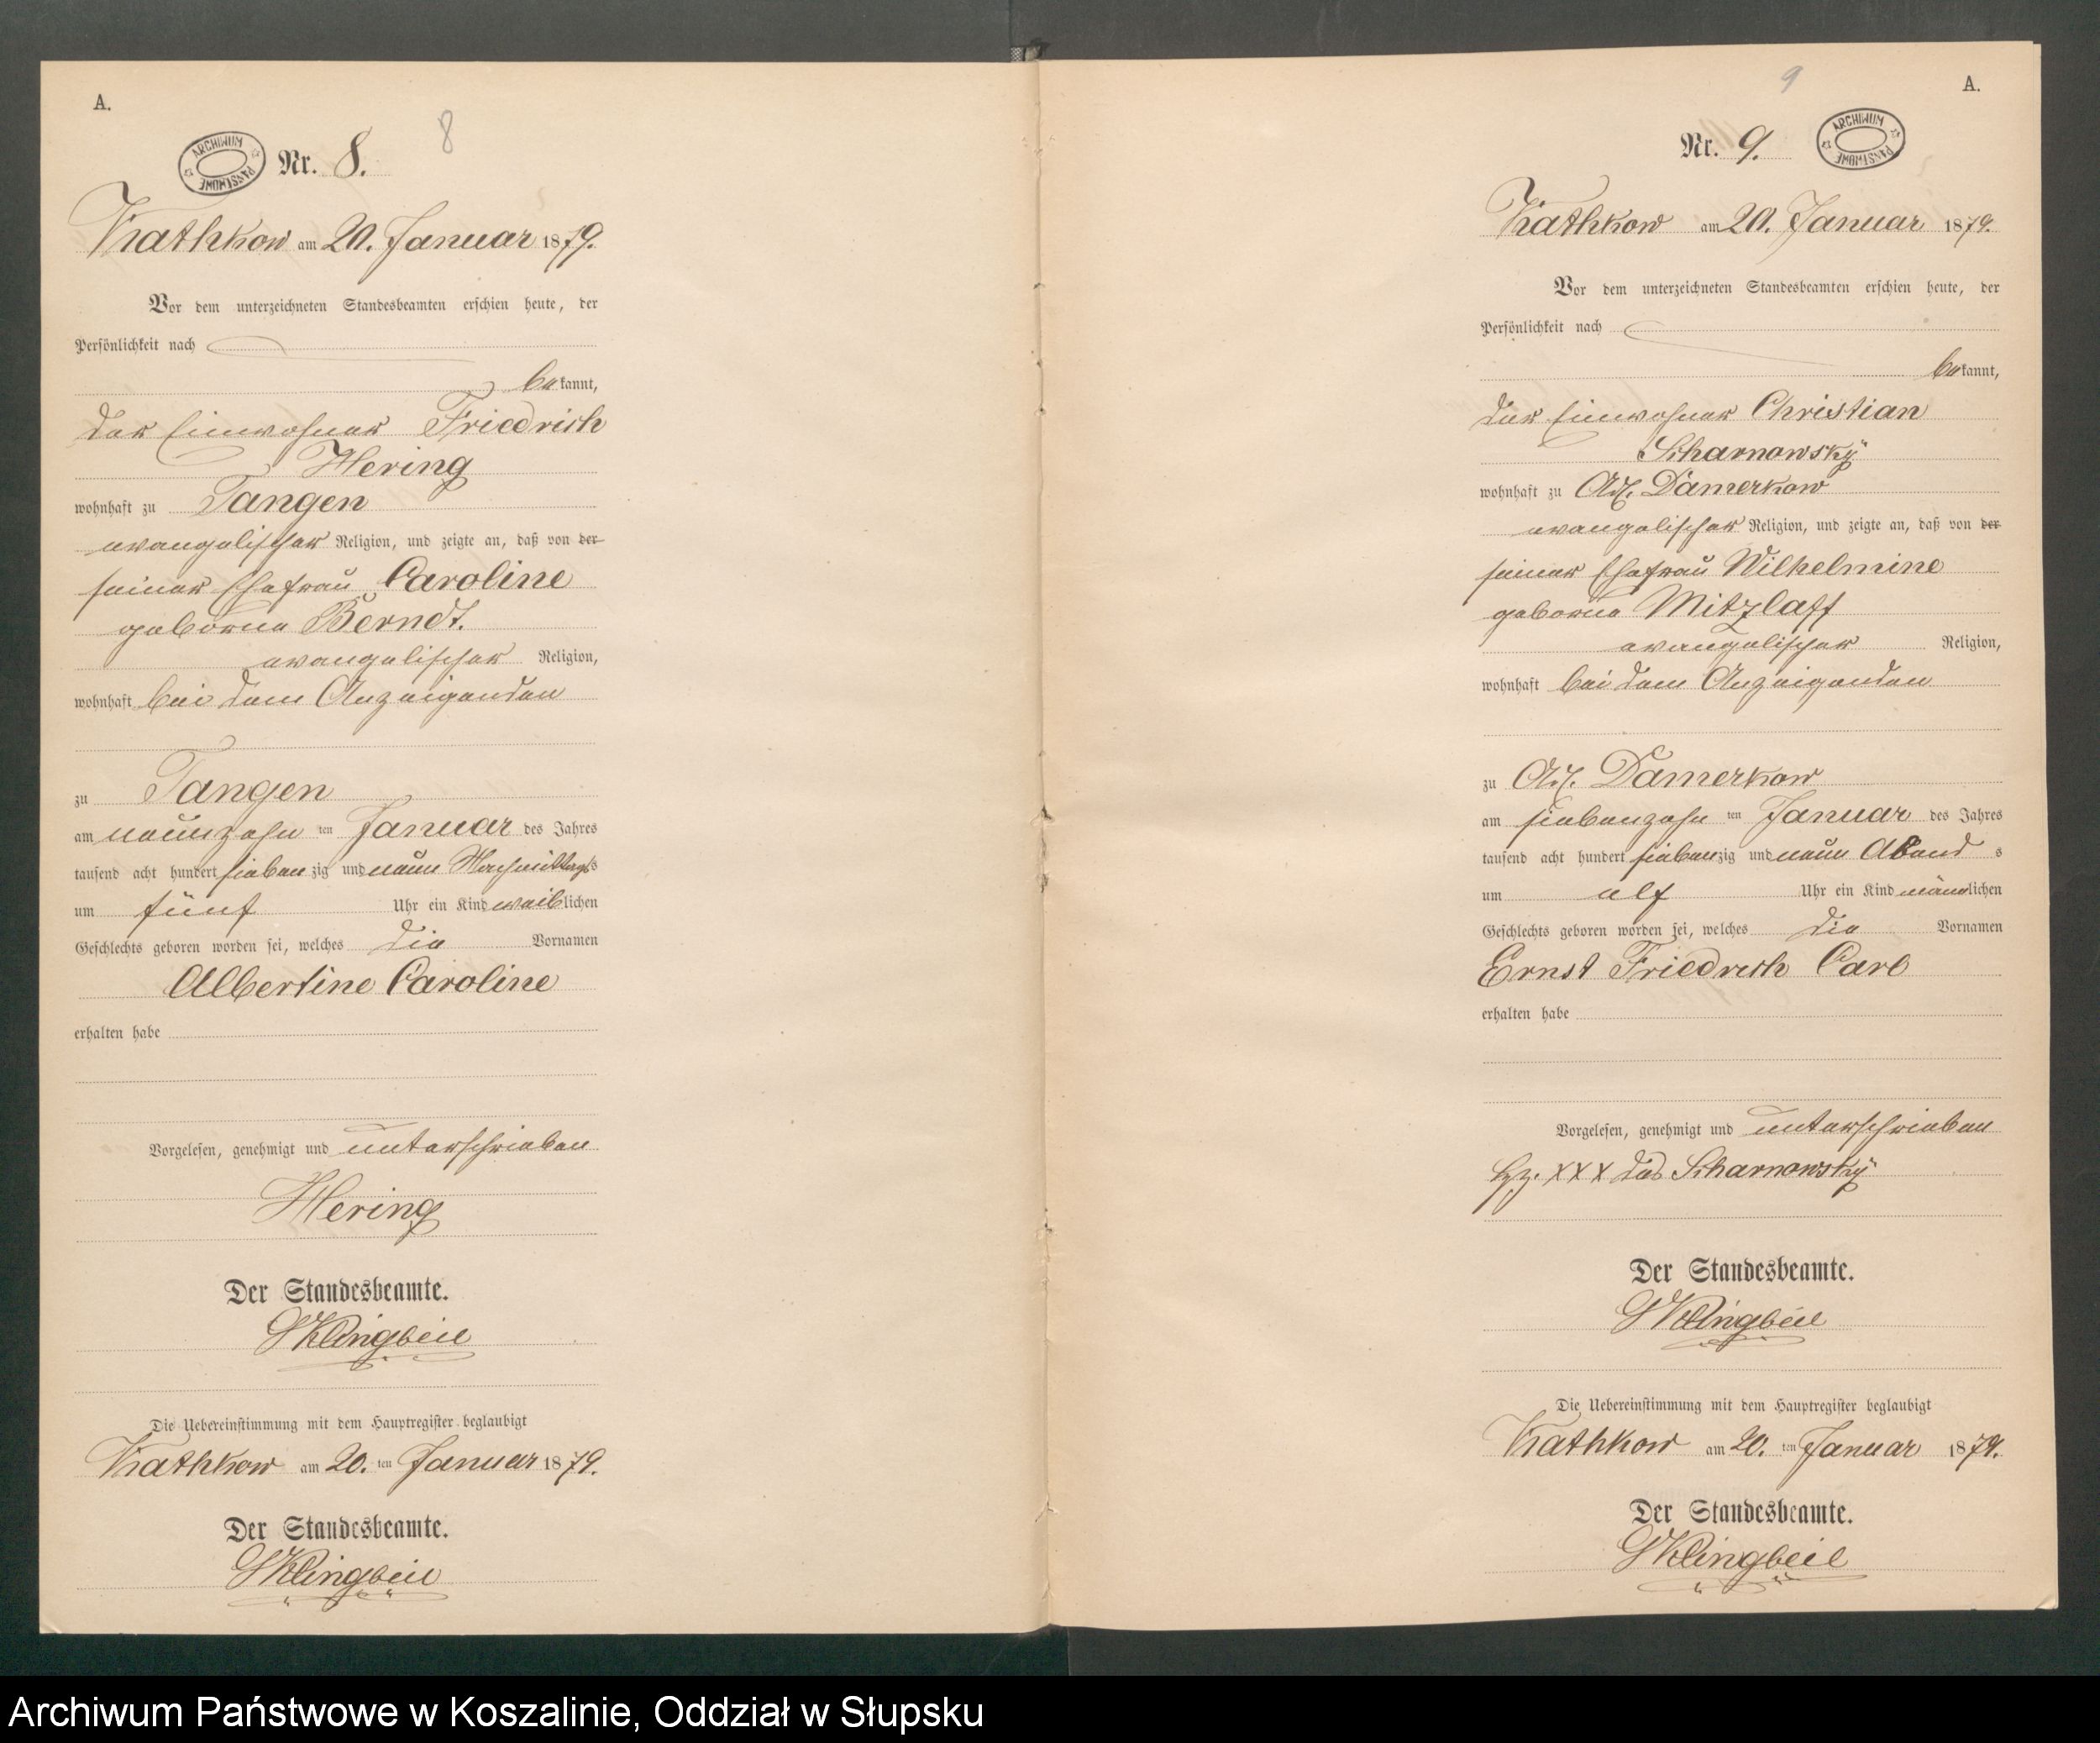 A.
ARCHIWUM PAŃSTWOWE
Nr. 8.
8
Kathkow am 20. Januar 1879.
Vor dem unterzeichneten Standesbeamten erschien heute, der
Persönlichkeit nach
bekannt,
der Einwohner Friedrich
Hering
wohnhaft zu Tangen
evangelischer Religion, und zeigte an, daß von der
seiner Ehefrau Caroline
geborne Berndt.
evangelischer Religion,
wohnhaft bei dem Anzeigenden
zu Tangen
am neunzehn ten Januar des Jahres
tausend acht hundert siebenzig und neun Nachmittags
um fünf Uhr ein Kind weiblichen
Geschlechts geboren worden sei, welches die Vornamen
Albertine Caroline
erhalten habe
Vorgelesen, genehmigt und unterschrieben
Hering
Der Standesbeamte.
Klingbeil
Die Uebereinstimmung mit dem Hauptregister beglaubigt
Kathkow am 20. ten Januar 1879.
Der Standesbeamte.
Klingbeil
9
A.
Nr. 9.
ARCHIWUM PAŃSTWOWE
Kathkow am 20. Januar 1879.
Vor dem unterzeichneten Standesbeamten erschien heute, der
Persönlichkeit nach
bekannt,
der Einwohner Christian
Scharnowsky
wohnhaft zu Adl. Damerkow
evangelischer Religion, und zeigte an, daß von der
seiner Ehefrau Wilhelmine
geborne Mitzlaff
evangelischer Religion,
wohnhaft bei dem Anzeigenden
zu Adl. Damerkow
am siebenzehn ten Januar des Jahres
tausend acht hundert siebenzig und neun Abends
um elf Uhr ein Kind männlichen
Geschlechts geboren worden sei, welches die Vornamen
Ernst Friedrich Carl
erhalten habe
Vorgelesen, genehmigt und unterschrieben
Hz. XXX des Scharnowsky
Der Standesbeamte.
Klingbeil
Die Uebereinstimmung mit dem Hauptregister beglaubigt
Kathkow am 20. ten Januar 1879.
Der Standesbeamte.
Klingbeil
Archiwum Państwowe w Koszalinie, Oddział w Słupsku